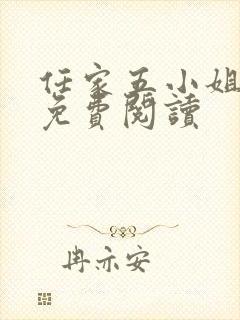 任家五小姐
免費閱讀
冉亦安